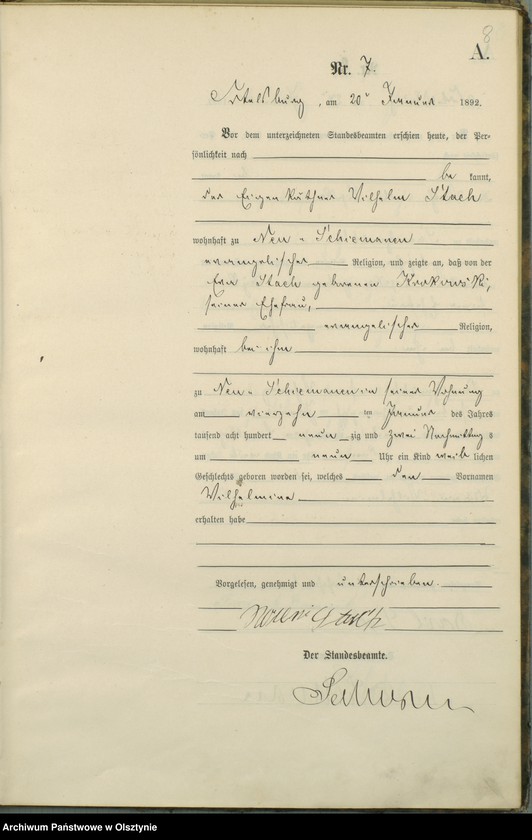 8
A.
Nr. 7.
am 20 Januar 1892.
Vor dem unterzeichneten Standesbeamten erschien heute, der Per-
sönlichkeit nach
be kannt,
der Eigenkäthner Wilhelm Stach
wohnhaft zu Neu-Schiemanen
evangelischer Religion, und zeigte an, daß von der
Stach geborenen Krokowski,
seiner Ehefrau,
evangelischer Religion,
wohnhaft bei ihm
zu Neu-Schiemanen in seiner Wohnung
am vierzehn ten Januar des Jahres
tausend acht hundert neun zig und zwei Nachmittag s
um neun Uhr ein Kind weib lichen
Geschlechts geboren worden sei, welches den Vornamen
Wilhelmine
erhalten habe
Vorgelesen, genehmigt und unterschrieben.
Stach
Der Standesbeamte.
Archiwum Państwowe w Olsztynie